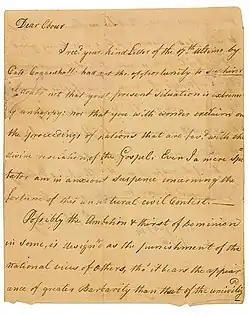 Dear Obour
I recd. your kind Letter of the 17th Ultimo by
Capt. Coggeshall had not the opportunity to
I doubt not that your present situation is extremely
unhappy; nor that you with wonder exclaim on
the proceedings of nations that are fav'd with the
divine revelation of the Gospel. Even I a mere Spec
tator am in anxious suspence concerning the
fortune of this unnatural civil Contest.—
Possibly the Ambition & thirst of Dominion
in some, is design'd as the punishment of the
national vices of others, tho' it bears the appear
ance of greater Barbarity than that of the